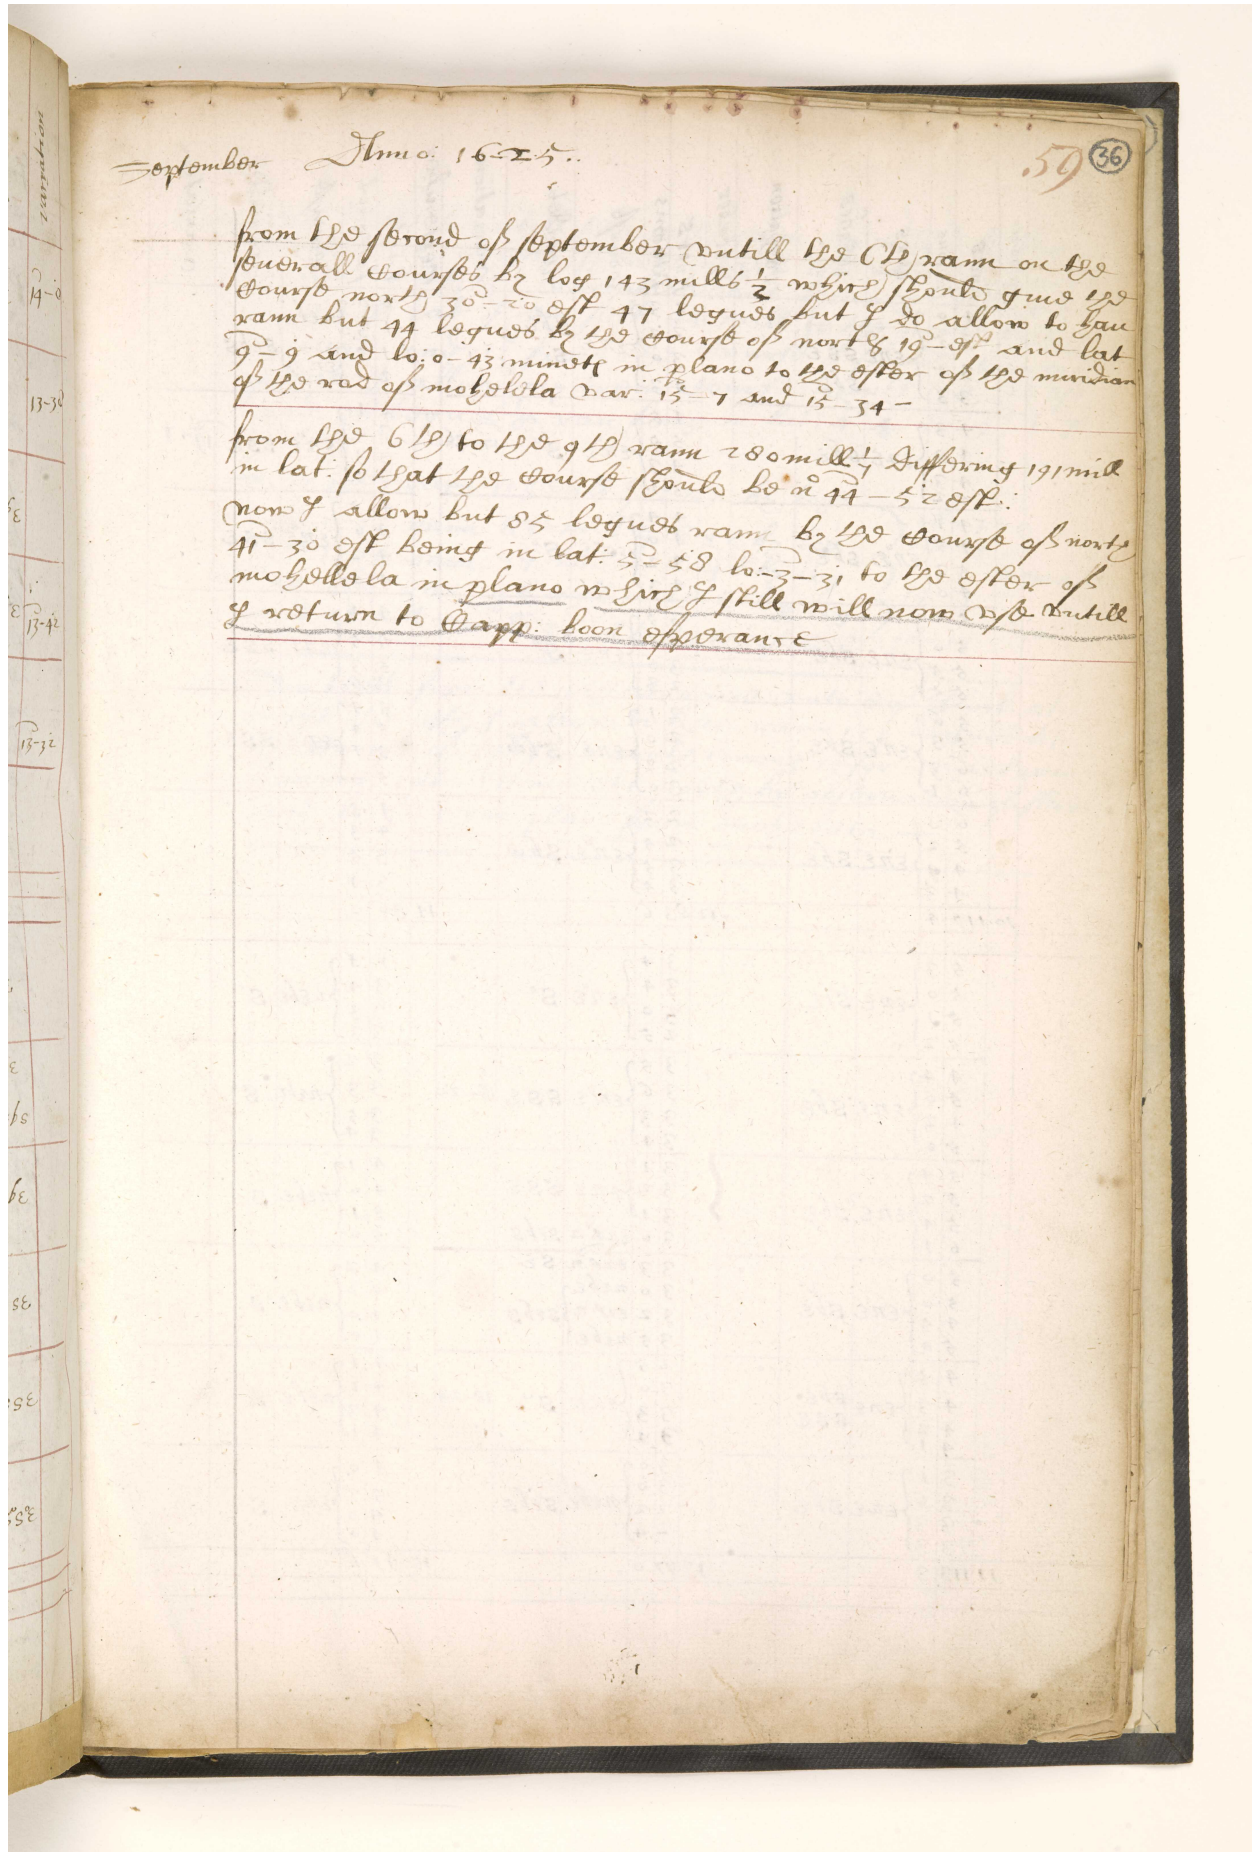 September Anno: 1625..
59 36
from the second of september vntill the 6th rann on the
seuerall Courses by log 143 mills 1/2 which should giue the
Course north 30-20 est 47 legues but I do allow to hau
rann but 44 legues by the Course of north 19-est and lat
9-9 and lo: 0-43 minets in plano to the ester of the miridian
of the rod of mohelela var: 15-7 and 15-34-
from the 6th to the 9th rann 280 mill 1/7 differing 191 mill
in lat: so that the Course should be no 44-52 est:
now I allow but 85 legues rann by the Course of north
41-30 est being in lat: 5-58 lo:-3-31 to the ester of
mohellela in plano which I still will now vse vntill
I return to Capp: boon esperance
variation
14-0
13-42
13-32